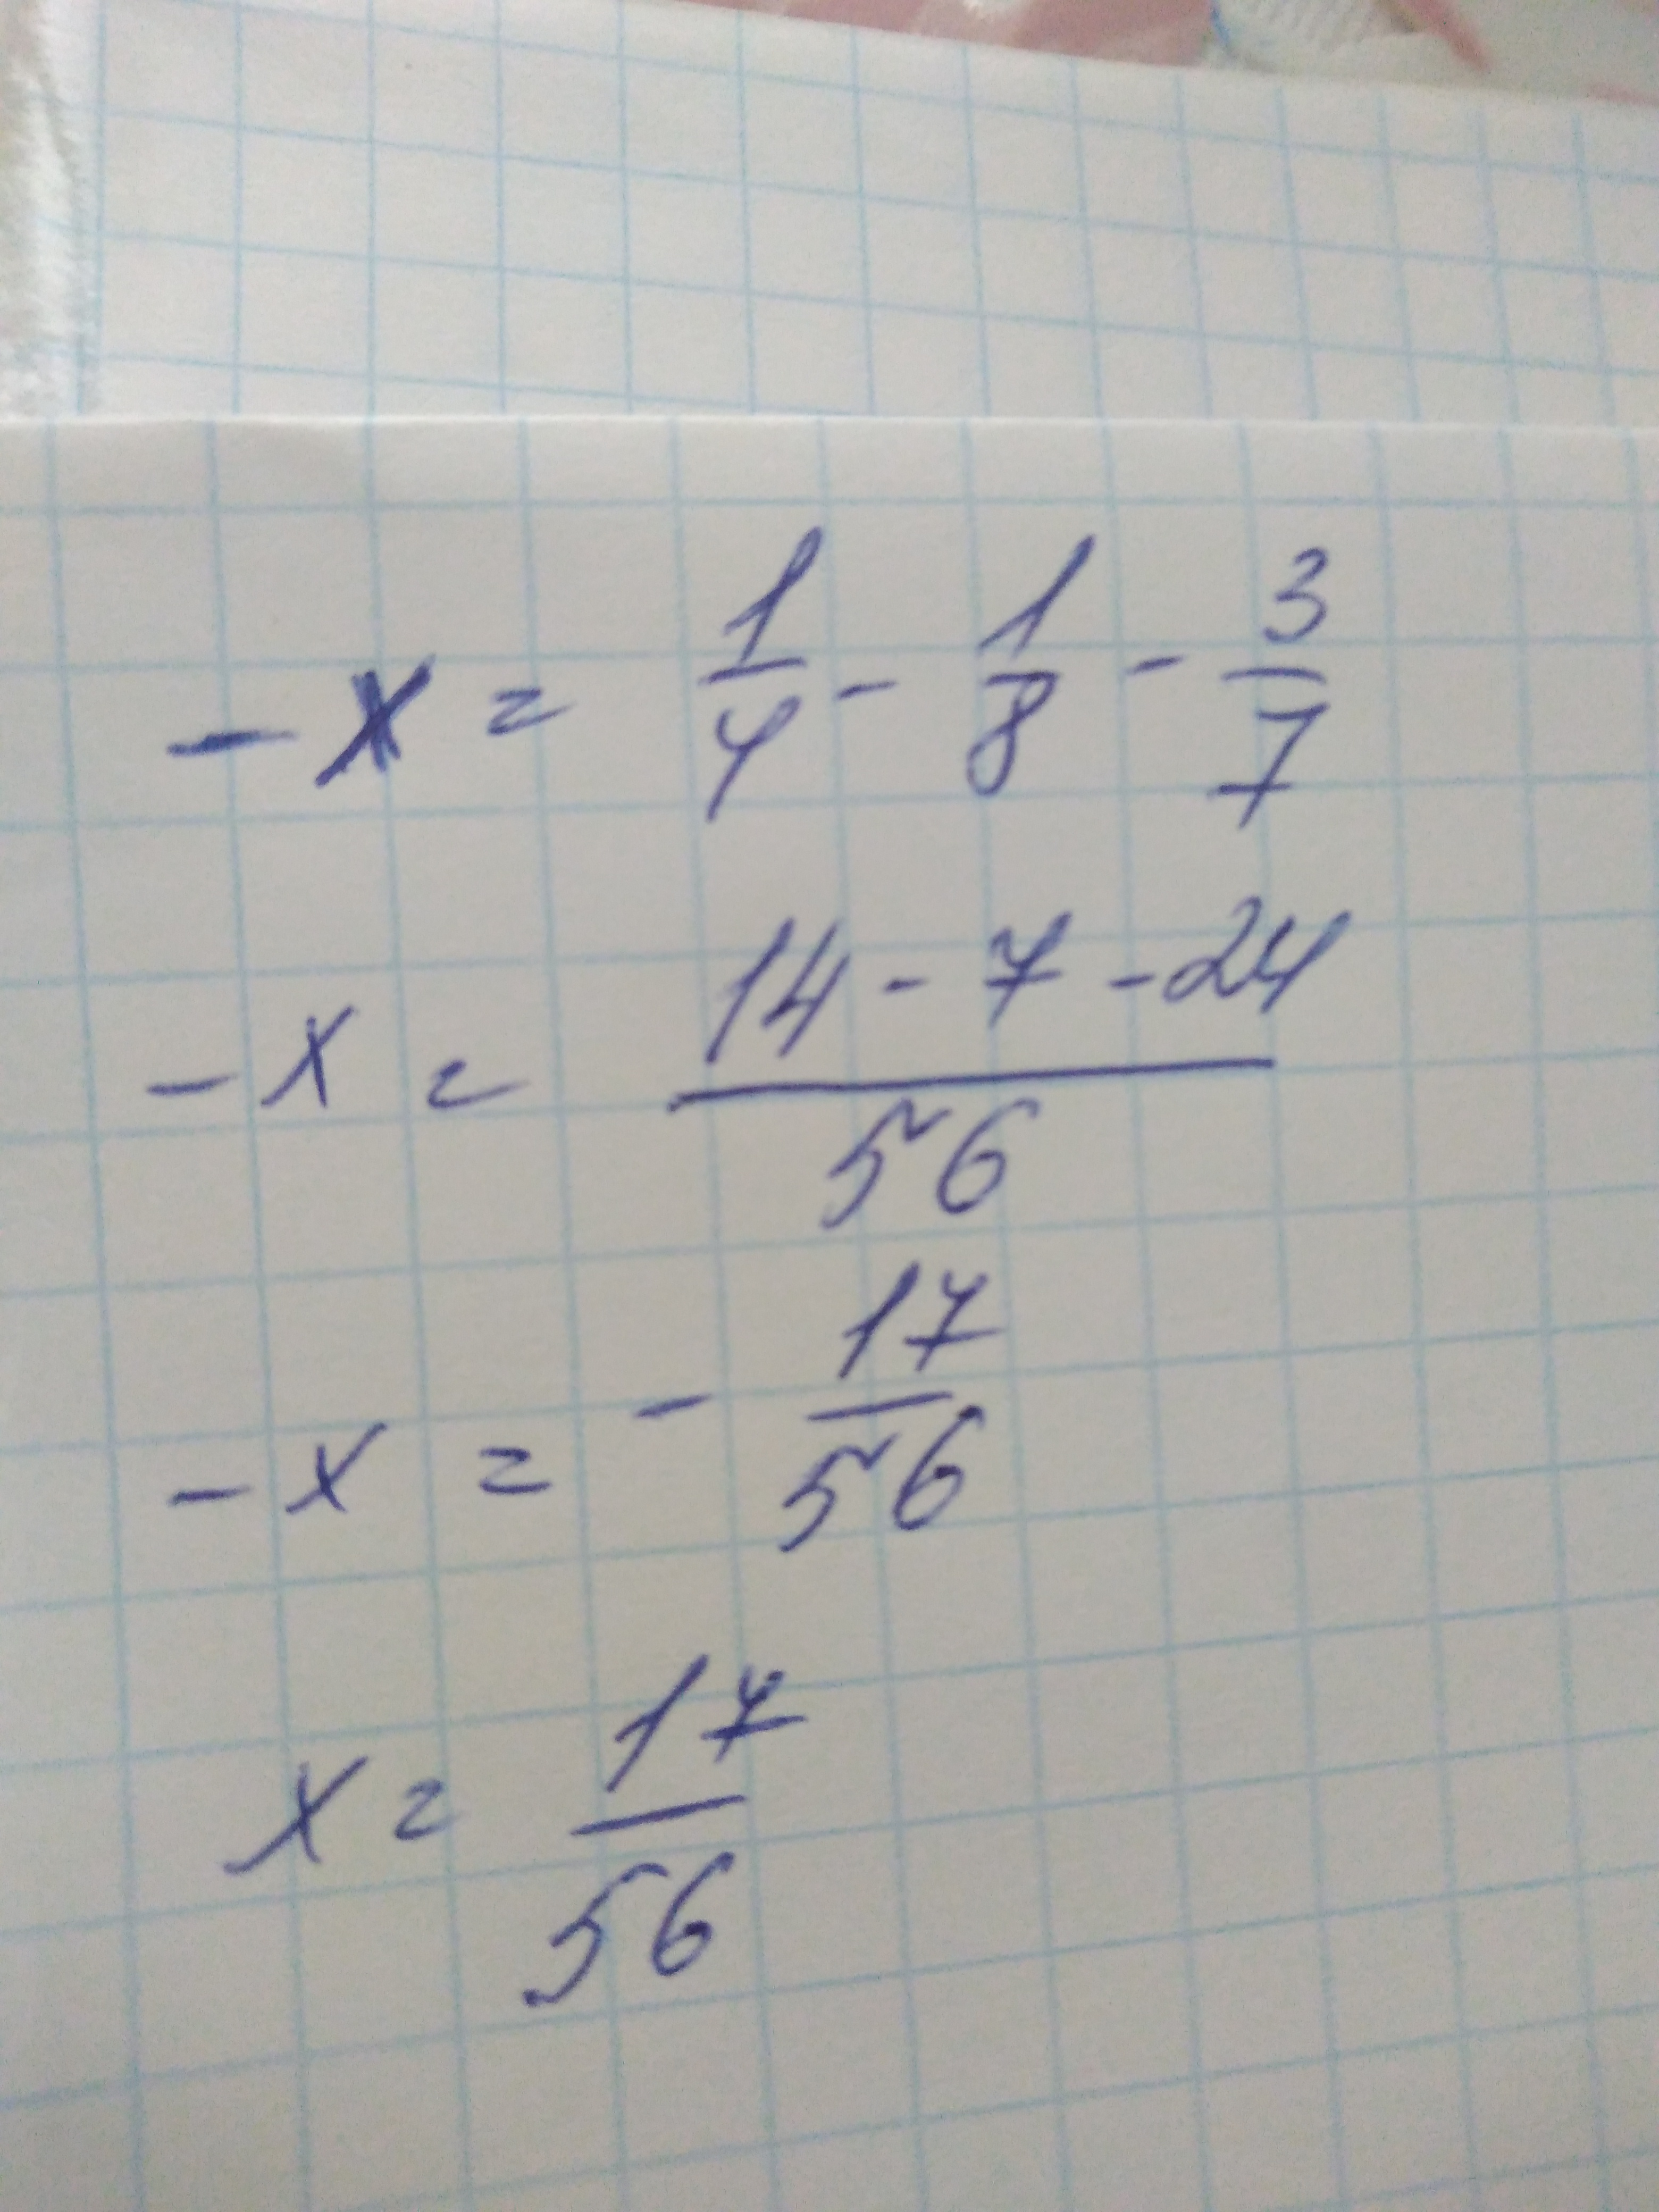 -x = 1/4 - 1/8 - 3/7
-x = (14 - 7 - 24)/56
-x = - 17/56
x = 17/56